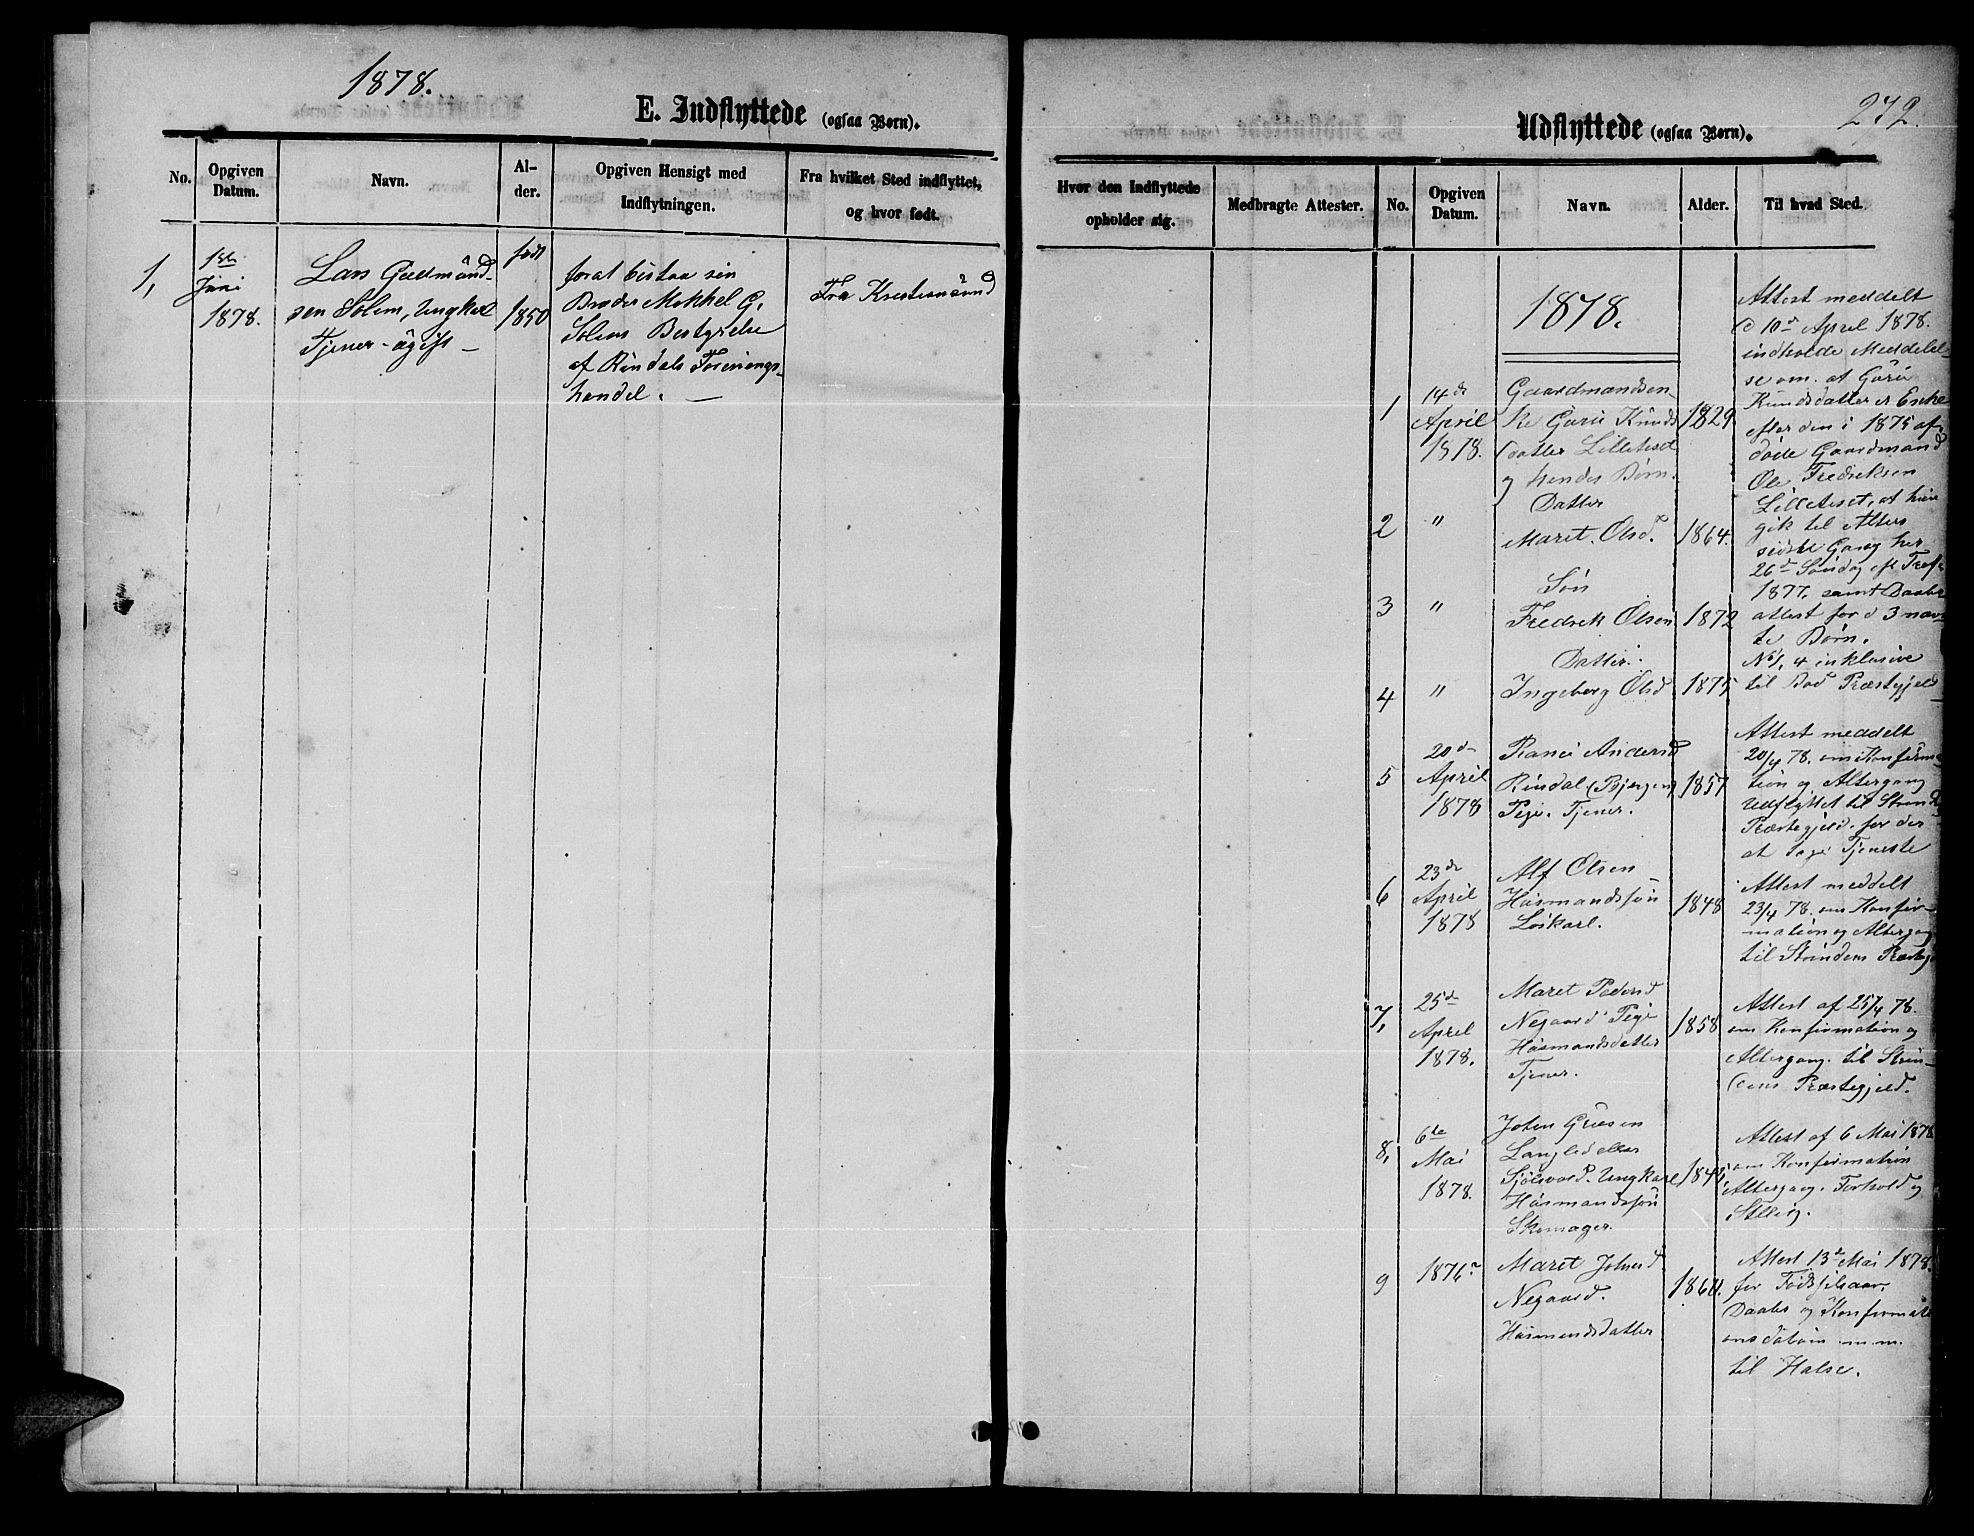 1878.
E. Indflyttede (ogsaa Børn).
No.
Opgiven
Datum.
Navn.
Al-
der.
Opgiven Hensigt med
Indflytningen.
Fra hvilket Sted indflyttet,
og hvor født.
1,
1ste
Juni
1878.
Lars Gudmund-
sen Solem, Ungkarl
Tjener - ugift -
født
1850
for at bistaa sin
Broder Mekkel G.
Solems Bestyrelse
af Rindals Forenings-
handel. -
Fra Kristiansund
272.
Udflyttede (ogsaa Børn).
Hvor den Indflyttede
opholder sig.
Medbragte Attester.
No.
Opgiven
Datum.
Navn.
Alder.
Til hvad Sted.
1878.
1
14de
April
1878.
Gaardmandsen-
ke Guru Knuds
datter Lilleteset
og hendes Børn.
1829
Attest meddelt
d 10de April 1878.
indholde Meddelel-
se om at Guru
Knudsdatter er Enke
efter den i 1875 af-
døde Gaardmand
Ole Fredriksen
Lilleteset, at hun
gik til Alters
sidste Gang her
26de Søndag eft Tref.
1877, samt Daabs
attest for d 3 næv-
te Børn.
No 1, 4 inklusive
til Bod Præstegjeld
2
"
Datter
Maret. Olsd.
1864.
3
"
Søn
Fredrik Olsen
1872
4
"
Datter.
Ingeborg Olsd.
1875
5
20de
April
1878
Ranei Andersd
Rindal (Bjørgen)
Pige. Tjener.
1857
Attest meddelt
20/4 78. om Konfirma-
tion og Altergang
Udflyttet til Strind
Præstegjeld. for der
at søge Tjeneste
6
23de
April
1878
Alf Olsen
Husmandssøn
Løskarl.
1848
Attest meddelt
23/4 78. om Konfir-
mation og Altergang
til Strindens Præstegj
7,
25de
April
1878.
Maret Pedersd
Negaard Pige
Husmandsdatter
Tjener.
1858
Attest af 25/4 78.
om Konfirmation og
Altergang. til Strin-
dens Præstegjeld.
8,
6te
Mai
1878.
John
Langlid eller
Sjølsvold. Ungkarl
Husmandssøn
Skomager.
Attest af 6 Mai 1878
om Konfirmation
Altergang. Forhold og
Stilling.
9
1876
Maret Johnsd.
Negaard.
Husmandsdatter
Attest 13de Mai 1878.
for Fødselsaar,
Daabs og Konfirmati
onsdatum m.m.
til Halse.